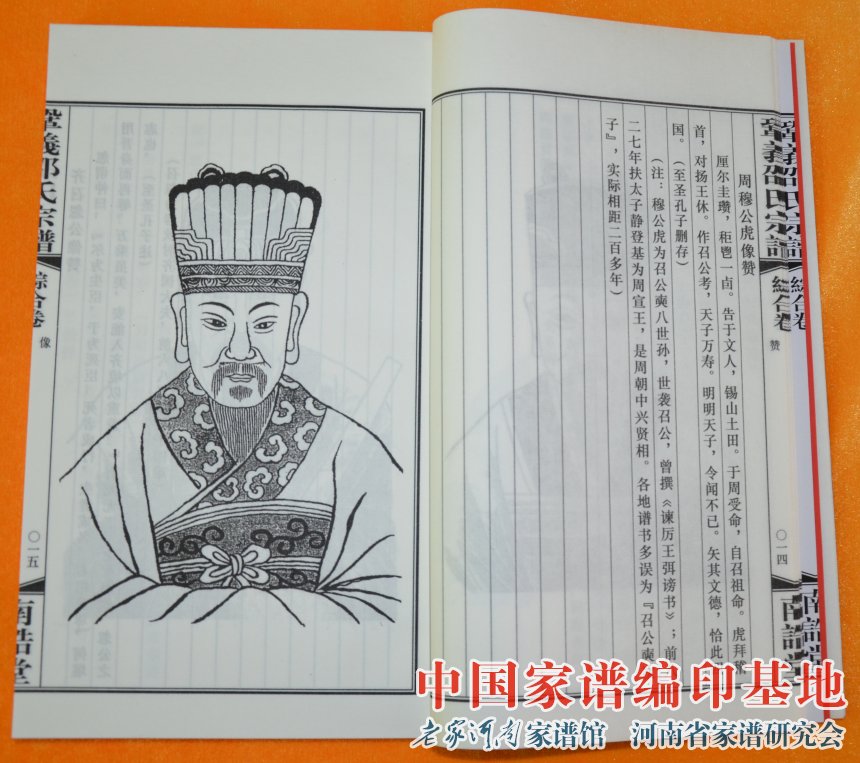 鞏義邵氏宗譜
綜合卷
赞
〇一四
南誥堂
周穆公虎像赞
厘尔圭瓒，秬鬯一卣。告于文人，锡山土田。于周受命，自召祖命。虎拜稽
首，对扬王休。作召公考，天子万寿。明明天子，令闻不已。矢其文德，恰此
国。（至圣孔子删存）
（注：穆公虎为召公奭八世孙，世袭召公，曾撰《谏厉王弭谤书》；前
二七年扶太子静登基为周宣王，是周朝中兴贤相。各地谱书多误为『召公奭
子』，实际相距二百多年）
鞏義邵氏宗譜
綜合卷
像
〇一五
南誥堂
中国家谱编印基地
老家河南家谱馆 河南省家谱研究会